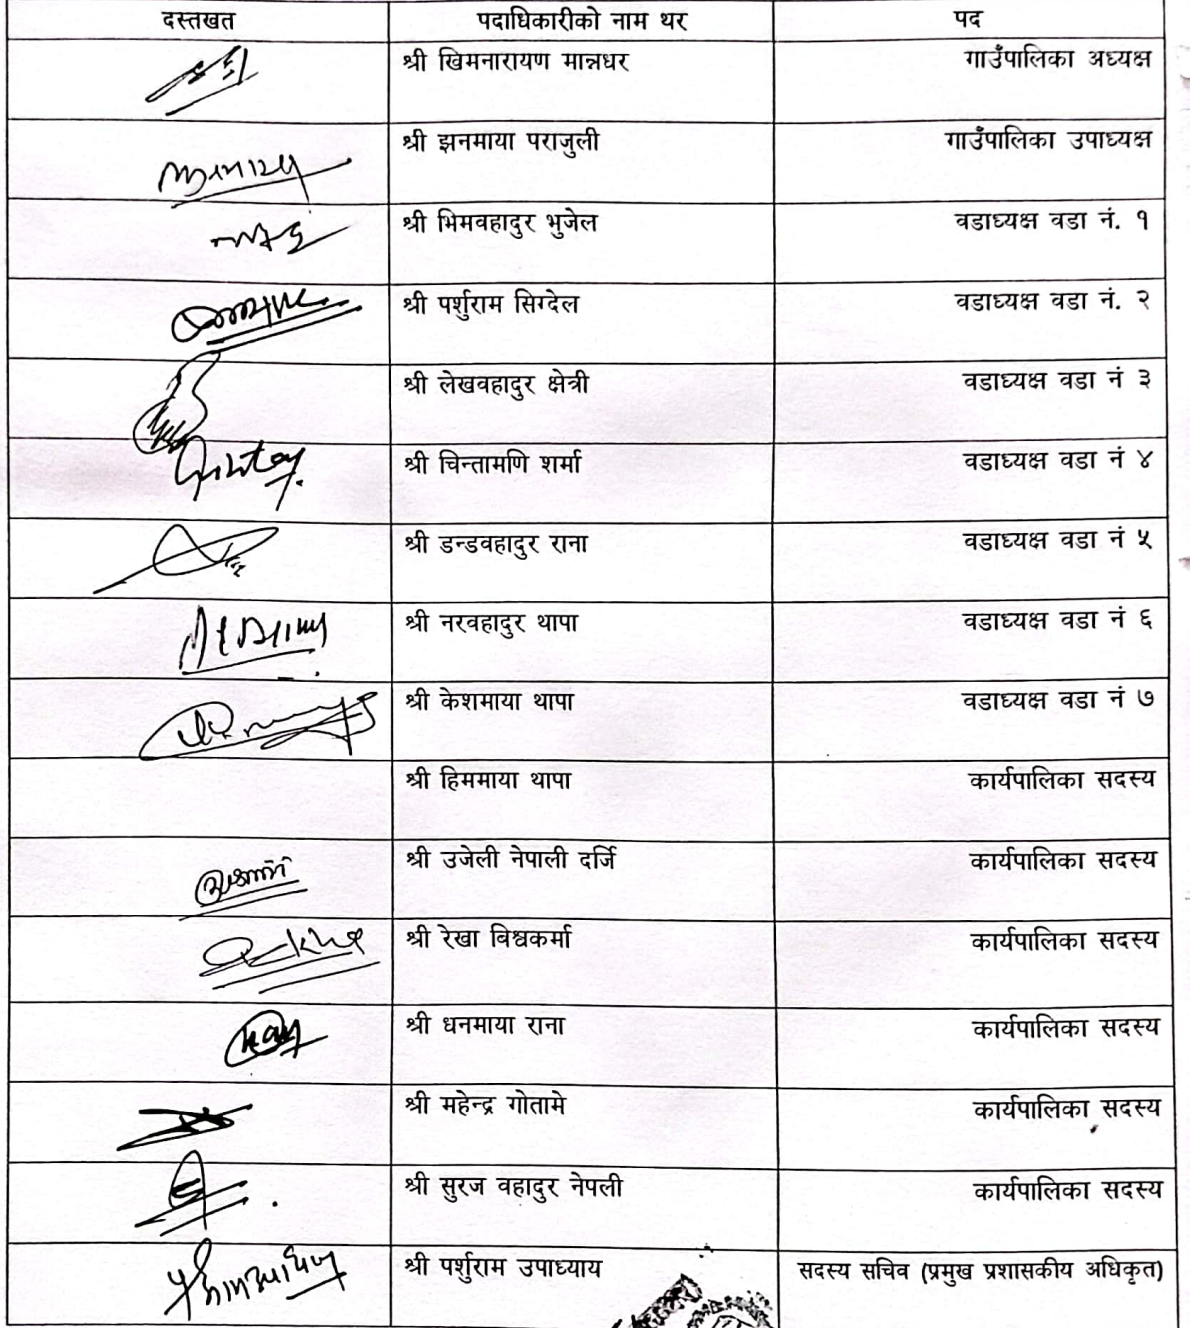 दस्तखत पदाधिकारीको नाम थर पद
श्री खिमनारायण मानन्धर गाउँपालिका अध्यक्ष
श्री झनमाया पराजुली गाउँपालिका उपाध्यक्ष
श्री भिमवहादुर भुजेल वडाध्यक्ष वडा नं. १
श्री पर्शुराम सिग्देल वडाध्यक्ष वडा नं. २
श्री लेखवहादुर क्षेत्री वडाध्यक्ष वडा नं ३
श्री चिन्तामणि शर्मा वडाध्यक्ष वडा नं ४
श्री डन्डवहादुर राना वडाध्यक्ष वडा नं ५
श्री नरवहादुर थापा वडाध्यक्ष वडा नं ६
श्री केशमाया थापा वडाध्यक्ष वडा नं ७
श्री हिममाया थापा कार्यपालिका सदस्य
श्री उजेली नेपाली दर्जि कार्यपालिका सदस्य
श्री रेखा बिश्वकर्मा कार्यपालिका सदस्य
श्री धनमाया राना कार्यपालिका सदस्य
श्री महेन्द्र गोतामे कार्यपालिका सदस्य
श्री सुरज वहादुर नेपली कार्यपालिका सदस्य
श्री पर्शुराम उपाध्याय सदस्य सचिव (प्रमुख प्रशासकीय अधिकृत)